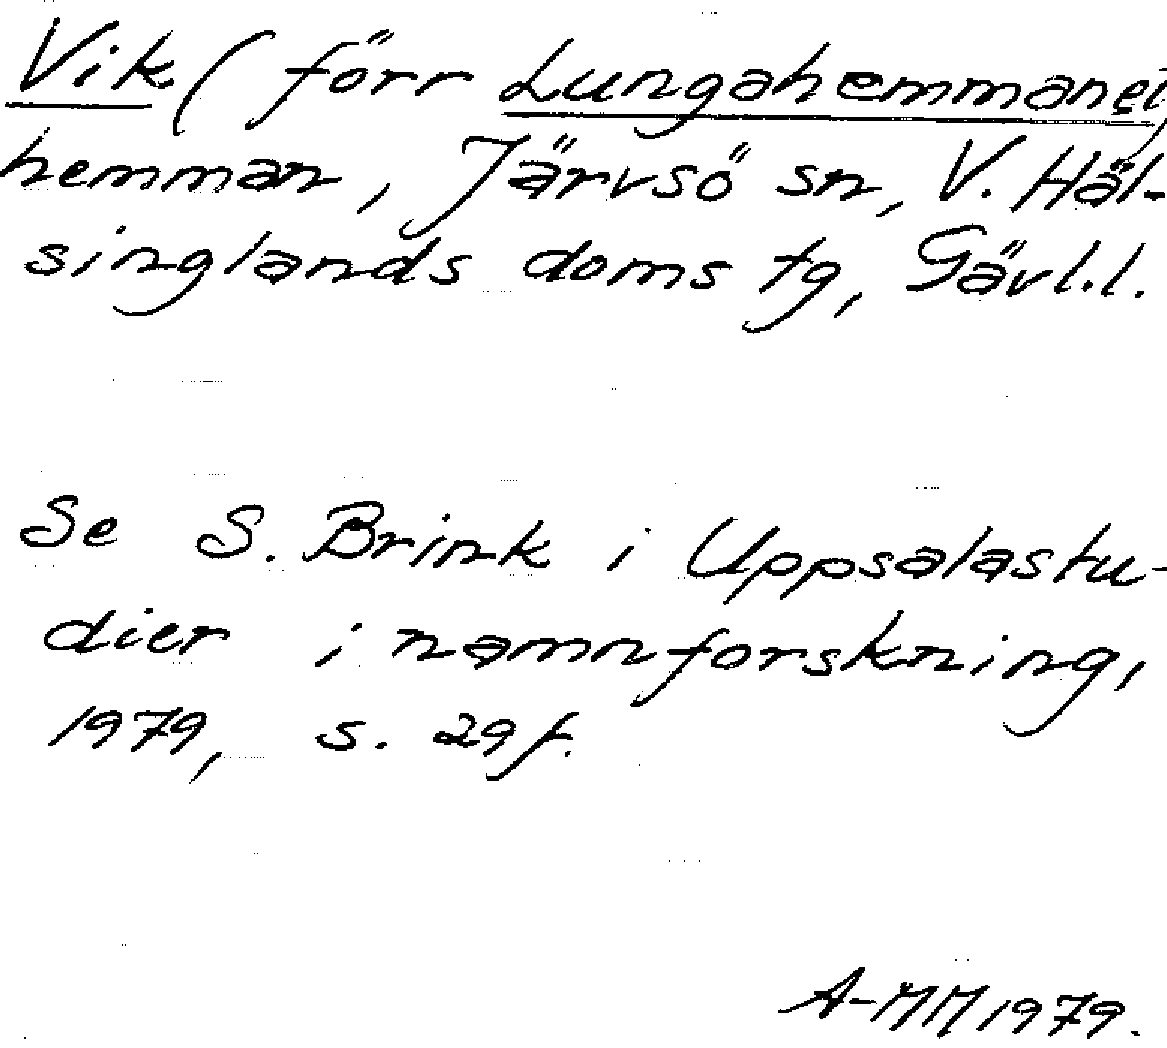 Vik (förr Lungahemmanet)
hemman, Järvsö sn, V. Häl-
singlands doms tg, Gävl.l.
Se S. Brink i Uppsalastu-
dier i namnforskning,
1979, s. 29f.
A-MM 1979.